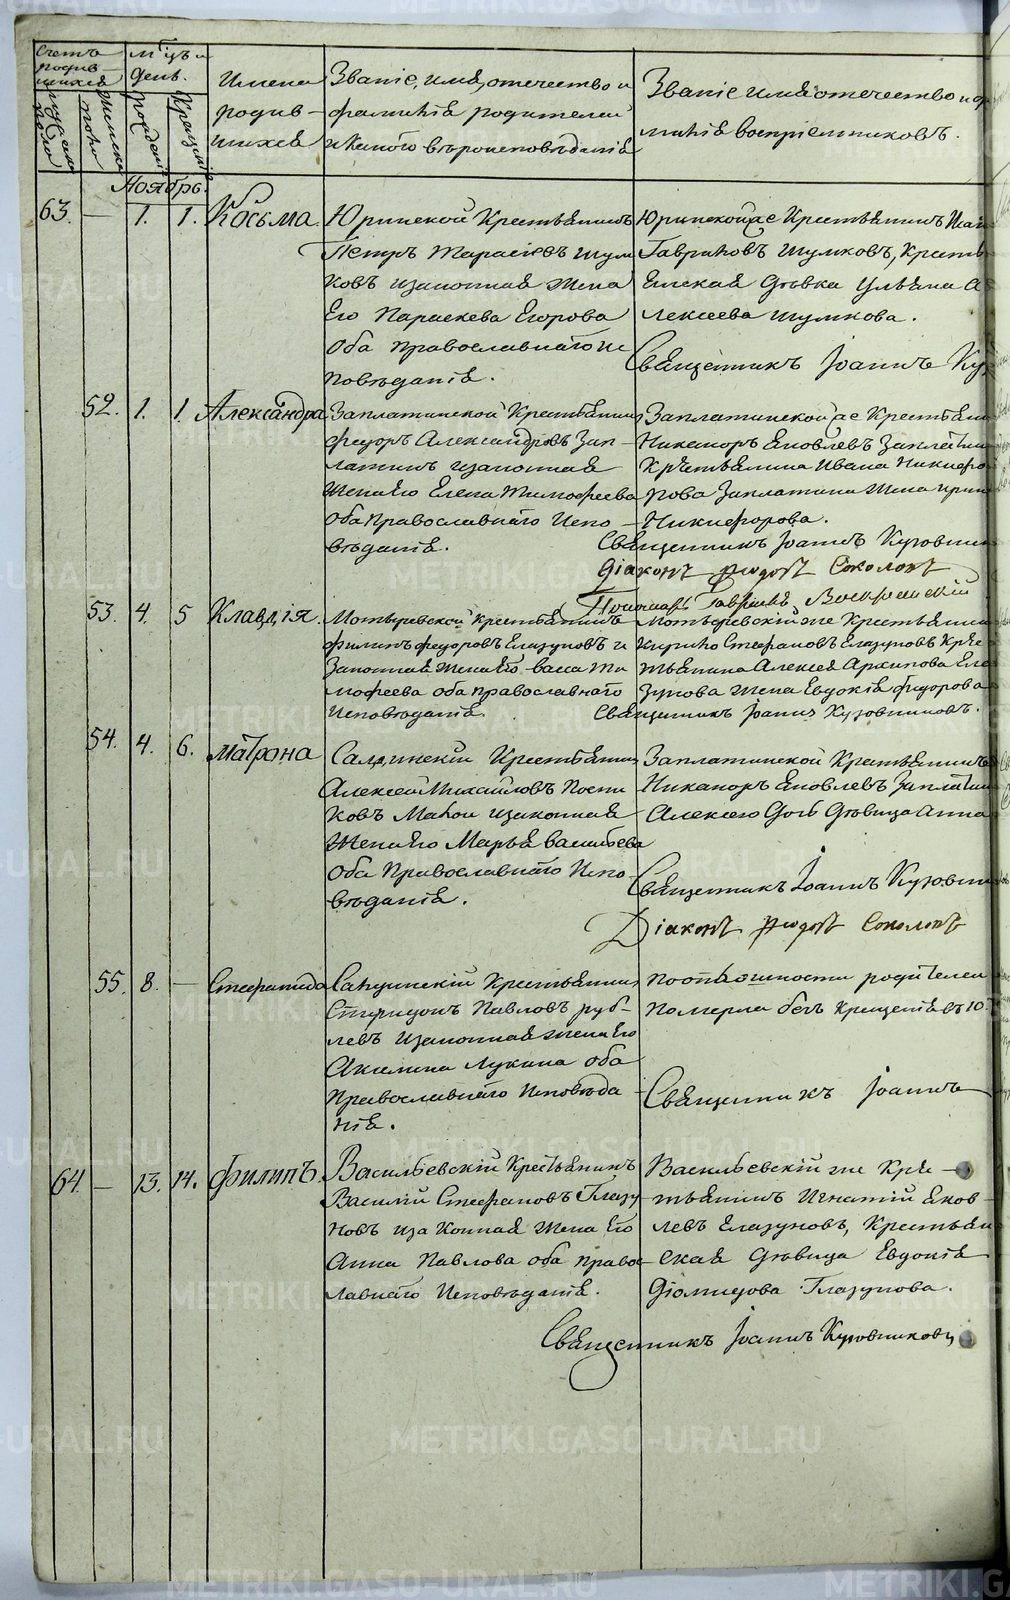 Счетъ родив­шихся
Мѣсяцъ и день.
Имена родив-
шихся
Званіе, имя, отечество и
фамилія родителей
и какого вѣроисповѣданія
Званіе имя отечество и фа
милія воспріемниковъ.
мужеска пола
женска пола
рожденія
крещенія
Ноябрь.
63. — 1. 1. Косьма.
Юринской Крестьянинъ
Петръ Тарасіевъ Шум
ковъ и законная жена
Его Параскева Егорова
Оба Православнаго Ис
повѣданія.
Юринской же Крестьянинъ
Гавриловъ Шумковъ, Кресть
янская дѣвка Ульяна А
лексѣева Шумкова.
Священникъ Іоаннъ
52. 1. 1. Александра
Заплатинской Крестьянинъ
Федоръ Александровъ Зап-
латинъ и законная
жена Его Елена Тимофеева
Оба Православнаго Испо-
вѣданія.
Заплатинской же Крестьян
Никаноръ Яковлевъ Заплатин
Крестьянина Ивана Никифо
рова Заплатина жена Ирин
Никифорова.
Священникъ Іоаннъ Кузовник
Діаконъ Соколовъ
Пономарь Гавріилъ Воскресенскій
53. 4. 5 Клавдія.
Мотыревской Крестьянинъ
Филипъ Федоровъ Глазуновъ и
Законная жена Его Васса Ти
мофеева оба православнаго
Исповѣданія.
Мотыревскій же Крестьянин
Кирило Стефановъ Глазуновъ Кре
стьянина Алексея Архипова Гла
зунова жена Евдокія Федорова
Священникъ Іоаннъ Кузовниковъ.
54. 4. 6. Матрона
Салдинскій Крестьянинъ
Алексей Михайловъ Посни
ковъ Малой и законная
жена Его Марья Васильева
Оба Православнаго Испо-
вѣданія.
Заплатинской Крестьянинъ
Никаноръ Яковлевъ Заплатин
Алексего дочь дѣвица Анна
Священникъ Іоаннъ Кузовни
Діаконъ Соколовъ
55. 8. — Стефанида
Салдинскій Крестьянинъ
Спиридонъ Павловъ Руб-
левъ и законная жена Его
Акилина Лукина оба
Православнаго Исповѣда
нія.
По оплошности родителей
Померла безъ Крещенія въ 10.
Священникъ Іоаннъ
64. — 13. 14. Филипъ.
Васильевскій Крестьянинъ
Василій Стефановъ Глазу
новъ и законная жена Его
Анна Павлова оба Право
славнаго Исповѣданія.
Васильевскій же Кре-
стьянинъ Игнатій Яков-
левъ Глазуновъ, Крестьян
ская дѣвица Евдокія
Діомидова Глазунова.
Священникъ Іоаннъ Кузовниковъ
METRIKI.GASO-URAL.RU